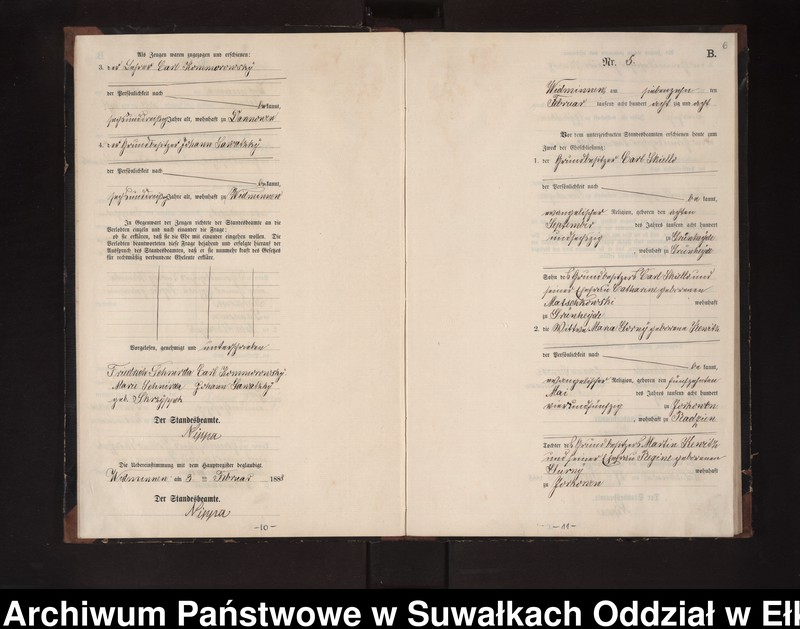 Als Zeugen waren zugezogen und erschienen:
3. der Lehrer Carl Kommorowsky
der Persönlichkeit nach
be kannt,
sechsunddreißig Jahre alt, wohnhaft zu Dannowen
4. der Grundbesitzer Johann Sawatzky
der Persönlichkeit nach
be kannt,
Jahre alt, wohnhaft zu Widminnen
In Gegenwart der Zeugen richtete der Standesbeamte an die
Verlobten einzeln und nach einander die Frage:
ob sie erklären, daß sie die Ehe mit einander eingehen wollen. Die
Verlobten beantworteten diese Frage bejahend und erfolgte hierauf der
Ausspruch des Standesbeamten, daß er sie nunmehr kraft des Gesetzes
für rechtmäßig verbundene Eheleute erkläre.
Vorgelesen, genehmigt und unterschrieben
Friedrich Schwida Carl Kommorowsky
Marie Schwida Johann Sawatzky
geb. Skrzyppek
Der Standesbeamte.
Nippa
Die Uebereinstimmung mit dem Hauptregister beglaubigt.
Widminnen am 3 ten Februar 1888
Der Standesbeamte.
Nippa
-10-
6
B.
Nr. 5.
Widminnen am siebenzehn ten
Februar tausend acht hundert acht zig und acht
Vor dem unterzeichneten Standesbeamten erschienen heute zum
Zweck der Eheschließung:
1. der Grundbesitzer Carl Skulls
der Persönlichkeit nach
be kannt,
evangelischer Religion, geboren den achten
September des Jahres tausend acht hundert
undsechszig zu Grünheyde
, wohnhaft zu Grünheyde
Sohn des Grundbesitzers Carl Skulls und
seiner Ehefrau Catharine geborenen
Matschkowski wohnhaft
zu Grünheyde
2. die Wittwe Maria Gorny geborene Kewitz
der Persönlichkeit nach
be kannt,
evangelischer Religion, geboren den fünfzehnten
Mai des Jahres tausend acht hundert
vierundfünfzig zu Jorkowen
, wohnhaft zu Radzien
Tochter des Grundbesitzers Martin Kewitz
und seiner Ehefrau Regine geborenen
wohnhaft
zu Jorkowen
-11-
Archiwum Państwowe w Suwałkach Oddział w Ełk